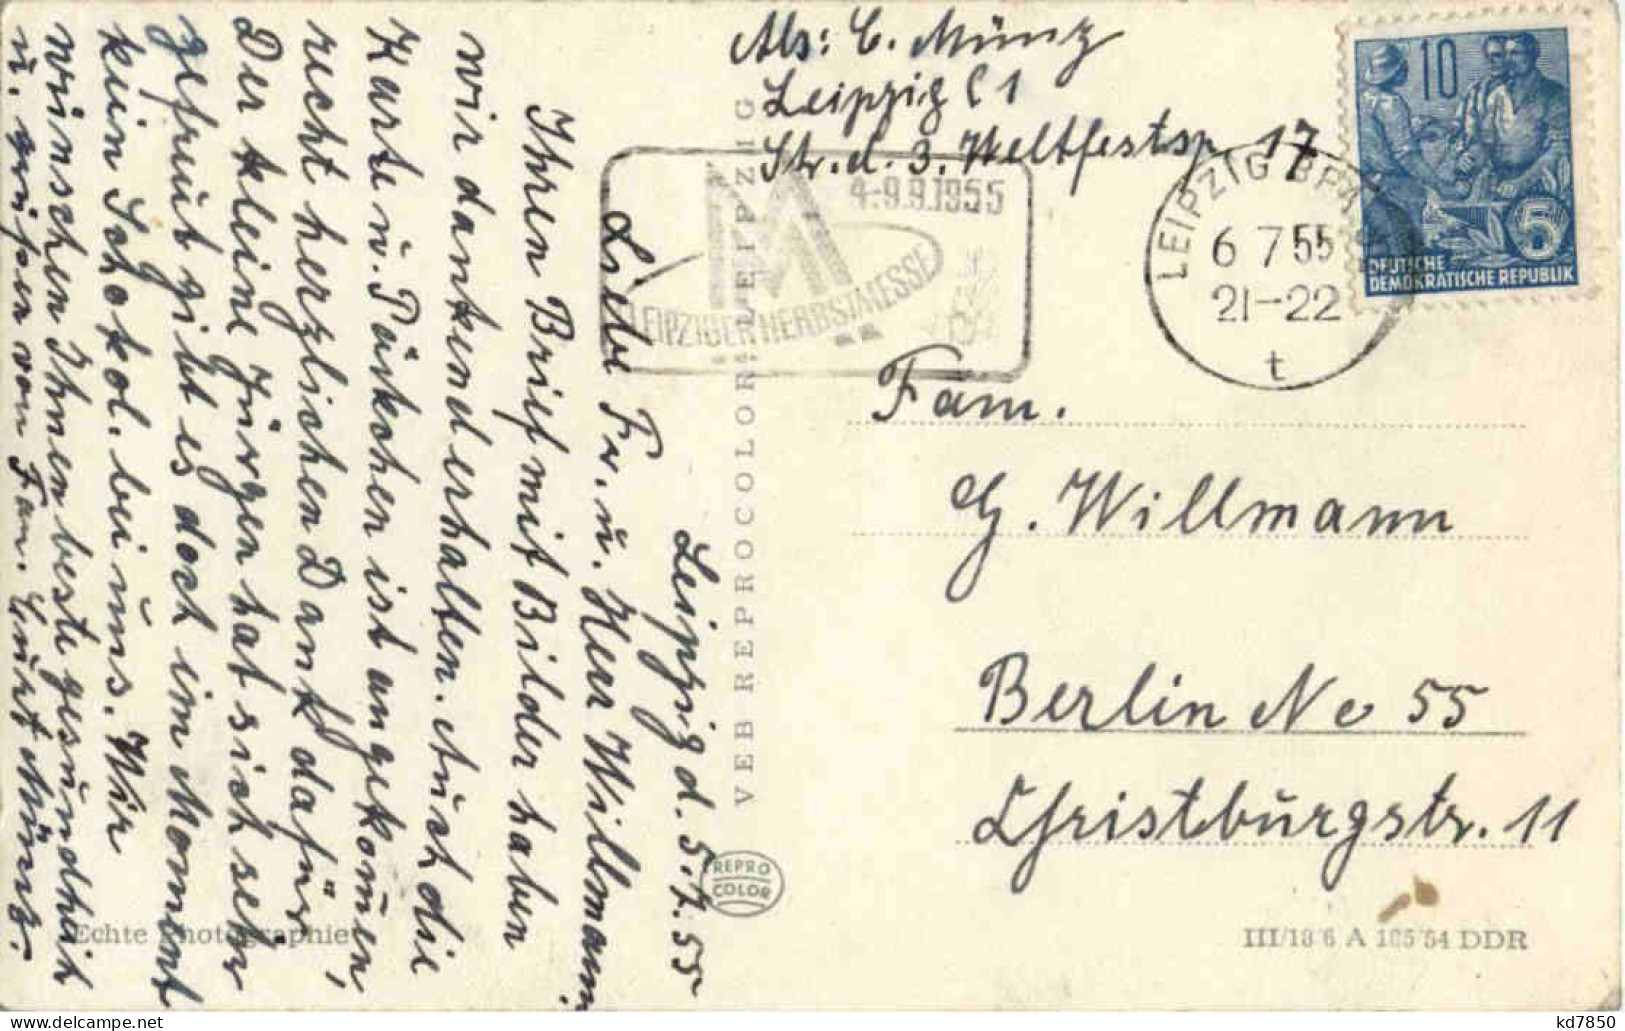 Abs: C. Münz
Leipzig C 1
Str. d. 3. Weltfestsp. 17
10
5
DEUTSCHE
DEMOKRATISCHE REPUBLIK
LEIPZIG BPA
6 7 55
21-22
t
4-9.9.1955
LEIPZIGER HERBSTMESSE
Fam.
G. Willmann
Berlin No 55
Christburgstr. 11
III/18 6 A 185 54 DDR
VEB REPROCOLOR LEIPZIG
REPRO
COLOR
Echte Photographie
Leipzig d. 5.7.55
Liebe Fr. u. Herr Willmann
Ihren Brief mit Bilder haben
wir dankend erhalten. Auch die
Karte u. Päckchen ist angekommen,
recht herzlichen Dank dafür.
Der kleine Jürgen hat sich sehr
gefreut gibt es doch im Moment
kein Schokol. bei uns. Wir
wünschen Ihnen beste Gesundheit
u. grüßen von Fam. Curt Münz.
kd7850